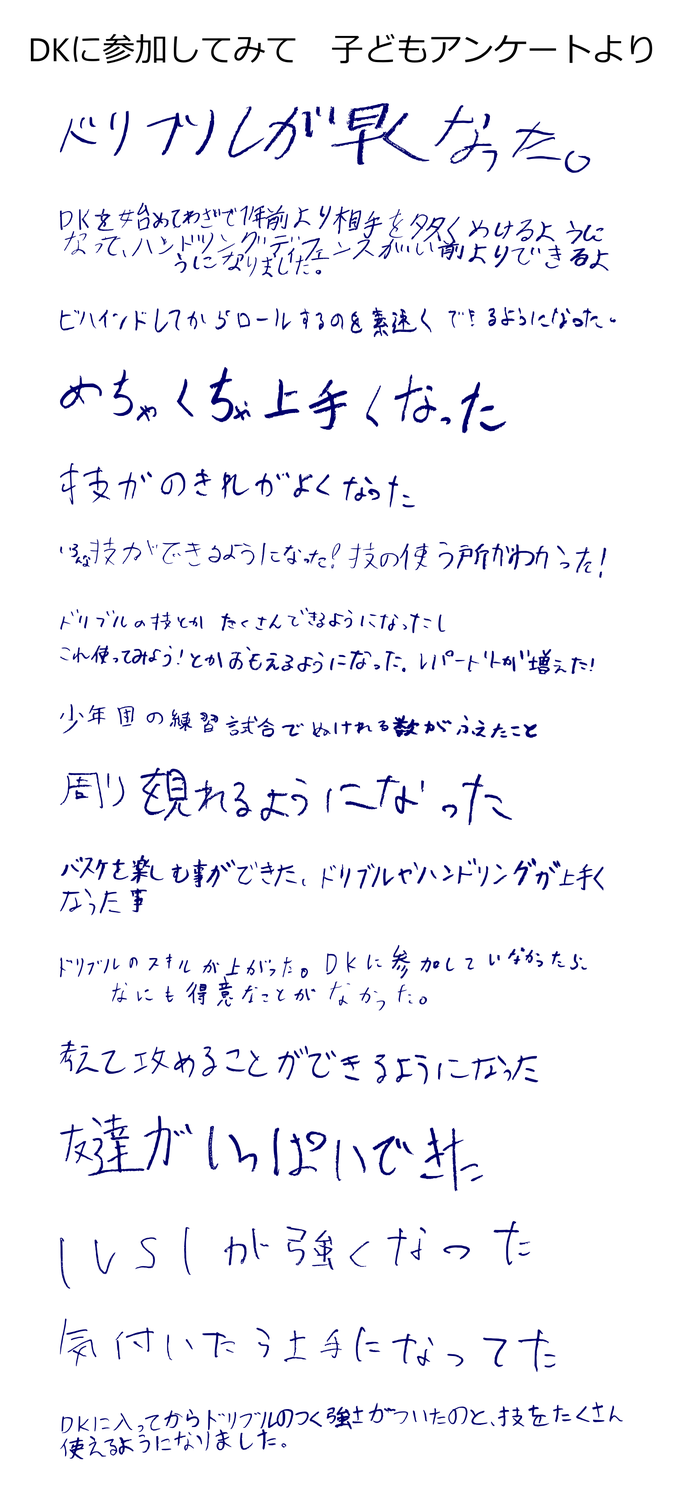 DKに参加してみて　子どもアンケートより
ドリブルが早くなった。
DKを始めてわざで1年前より相手を多くぬけるように
なって、ハンドリング、ディフェンスがい前よりできるよ
うになりました。
ビハインドしてからロールするのを素速くできるようになった。
めちゃくちゃ上手くなった
技がのきれがよくなった
いろんな技ができるようになった!技の使う所がわかった!
ドリブルの技とかたくさんできるようになったし
これ使ってみよう!とかおもえるようになった。レパートリーが増えた!
少年団の練習試合でぬけれる数がふえたこと
周りを観れるようになった
バスケを楽しむ事ができた、ドリブルやハンドリングが上手く
なった事
ドリブルのスキルが上がった。DKに参加していなかったら
なにも得意なことがなかった。
考えて攻めることができるようになった
友達がいっぱいできた
1vs1が強くなった
気付いたら上手になってた
DKに入ってからドリブルのつく強さがついたのと、技をたくさん
使えるようになりました。